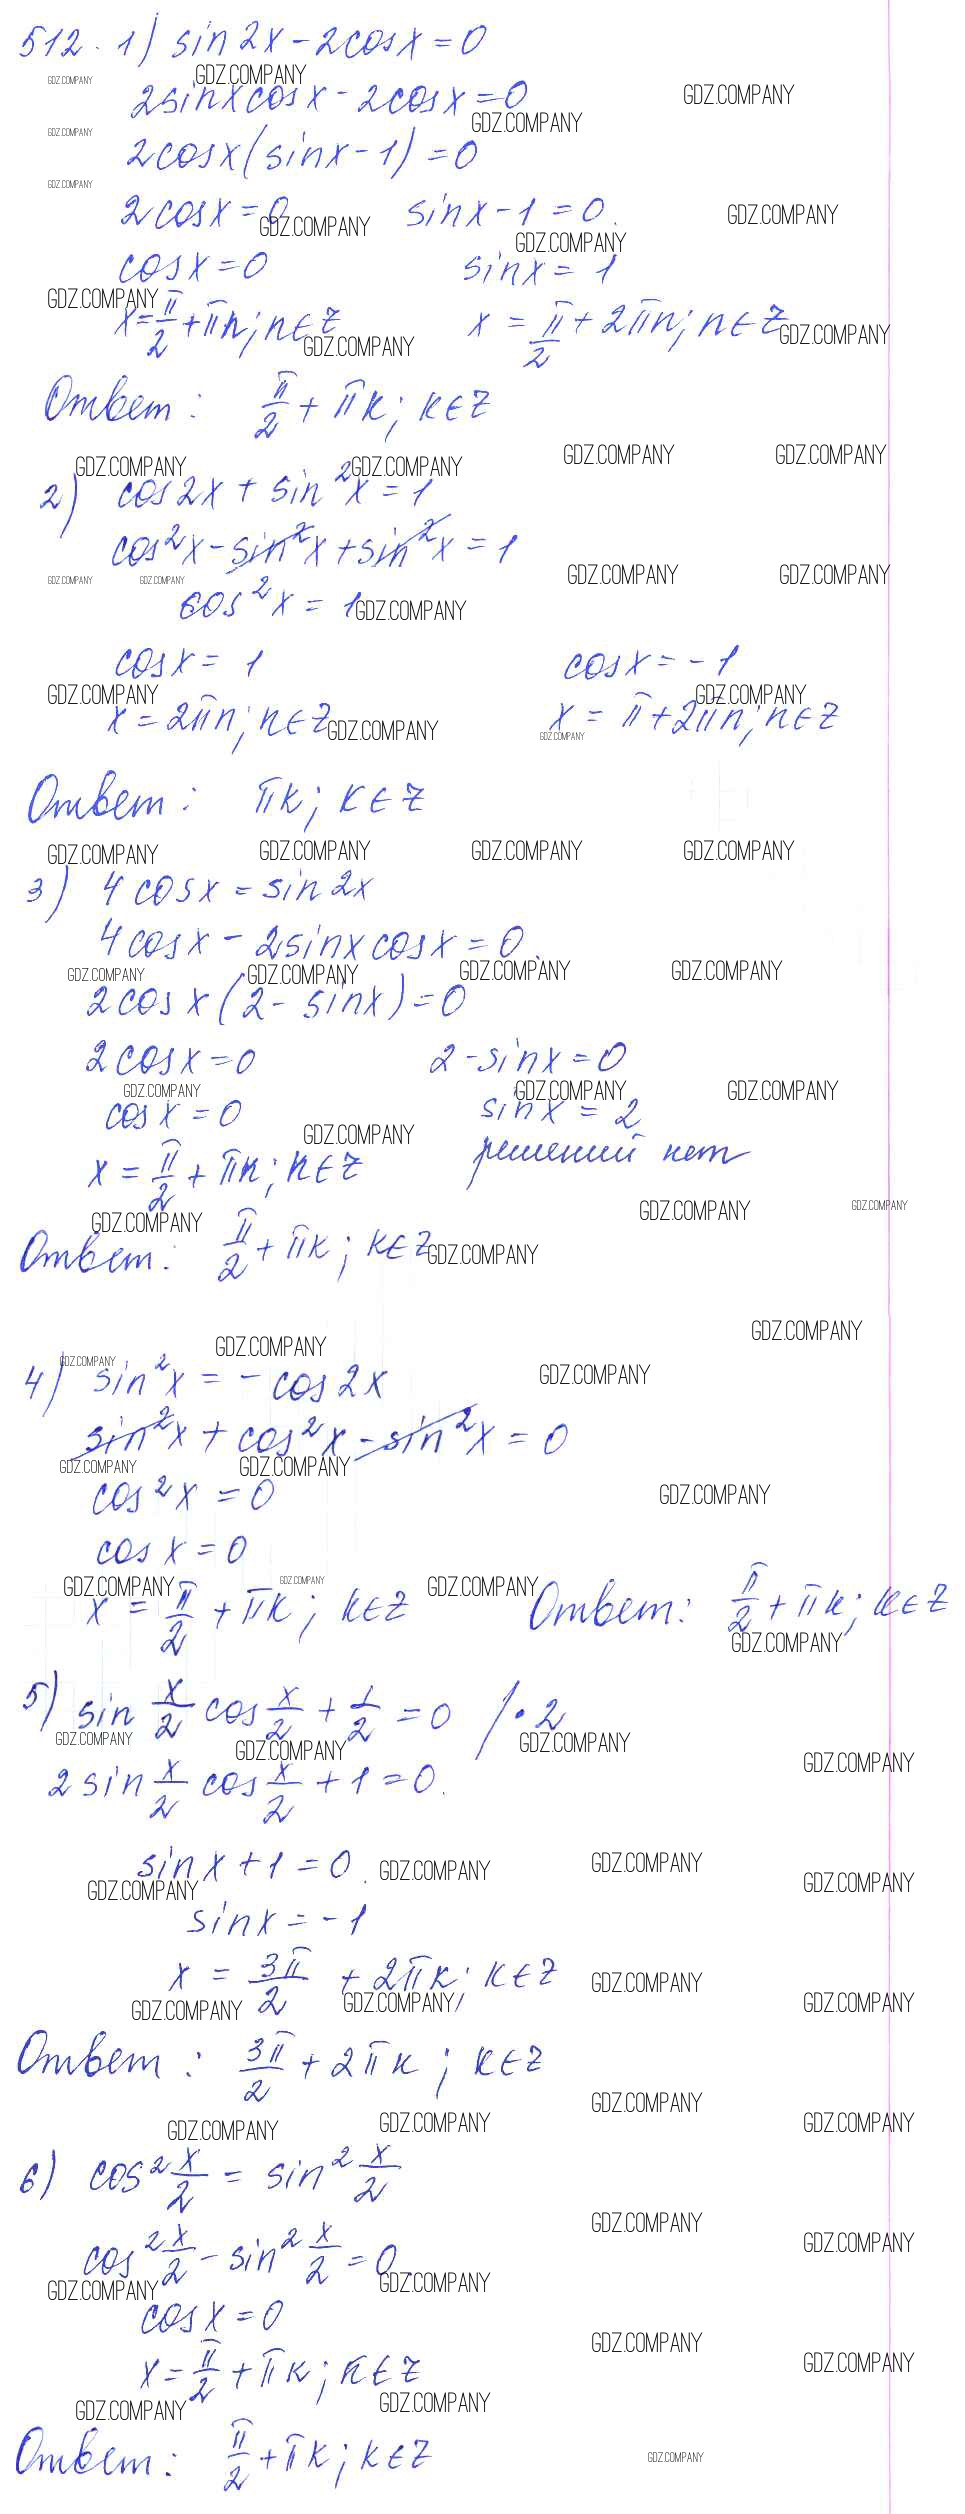 512. 1) sin2x - 2cosx = 0
2sinxcosx - 2cosx = 0
2cosx(sinx - 1) = 0
2cosx = 0 sinx - 1 = 0.
cosx = 0 sinx = 1
x = π/2 + πn; n∈Z x = π/2 + 2πn; n∈Z
Ответ: π/2 + πk; k∈Z
2) cos2x + sin²x = 1
cos²x - sin²x + sin²x = 1
cos²x = 1
cosx = 1 cosx = -1
x = 2πn; n∈Z x = π + 2πn; n∈Z
Ответ: πk; k∈Z
3) 4cosx = sin2x
4cosx - 2sinxcosx = 0.
2cosx(2 - sinx) = 0
2cosx = 0 2 - sinx = 0
cosx = 0 sinx = 2
x = π/2 + πk; k∈Z решений нет
Ответ: π/2 + πk; k∈Z
4) sin²x = -cos2x
sin²x + cos²x - sin²x = 0
cos²x = 0
cosx = 0
x = π/2 + πk; k∈Z Ответ: π/2 + πk; k∈Z
5) sin x/2 cos x/2 + 1/2 = 0 /·2
2sin x/2 cos x/2 + 1 = 0.
sinx + 1 = 0.
sinx = -1
x = 3π/2 + 2πk; k∈Z
Ответ: 3π/2 + 2πk; k∈Z
6) cos² x/2 = sin² x/2
cos² x/2 - sin² x/2 = 0.
cosx = 0
x = π/2 + πk; k∈Z
Ответ: π/2 + πk; k∈Z
GDZ.COMPANY